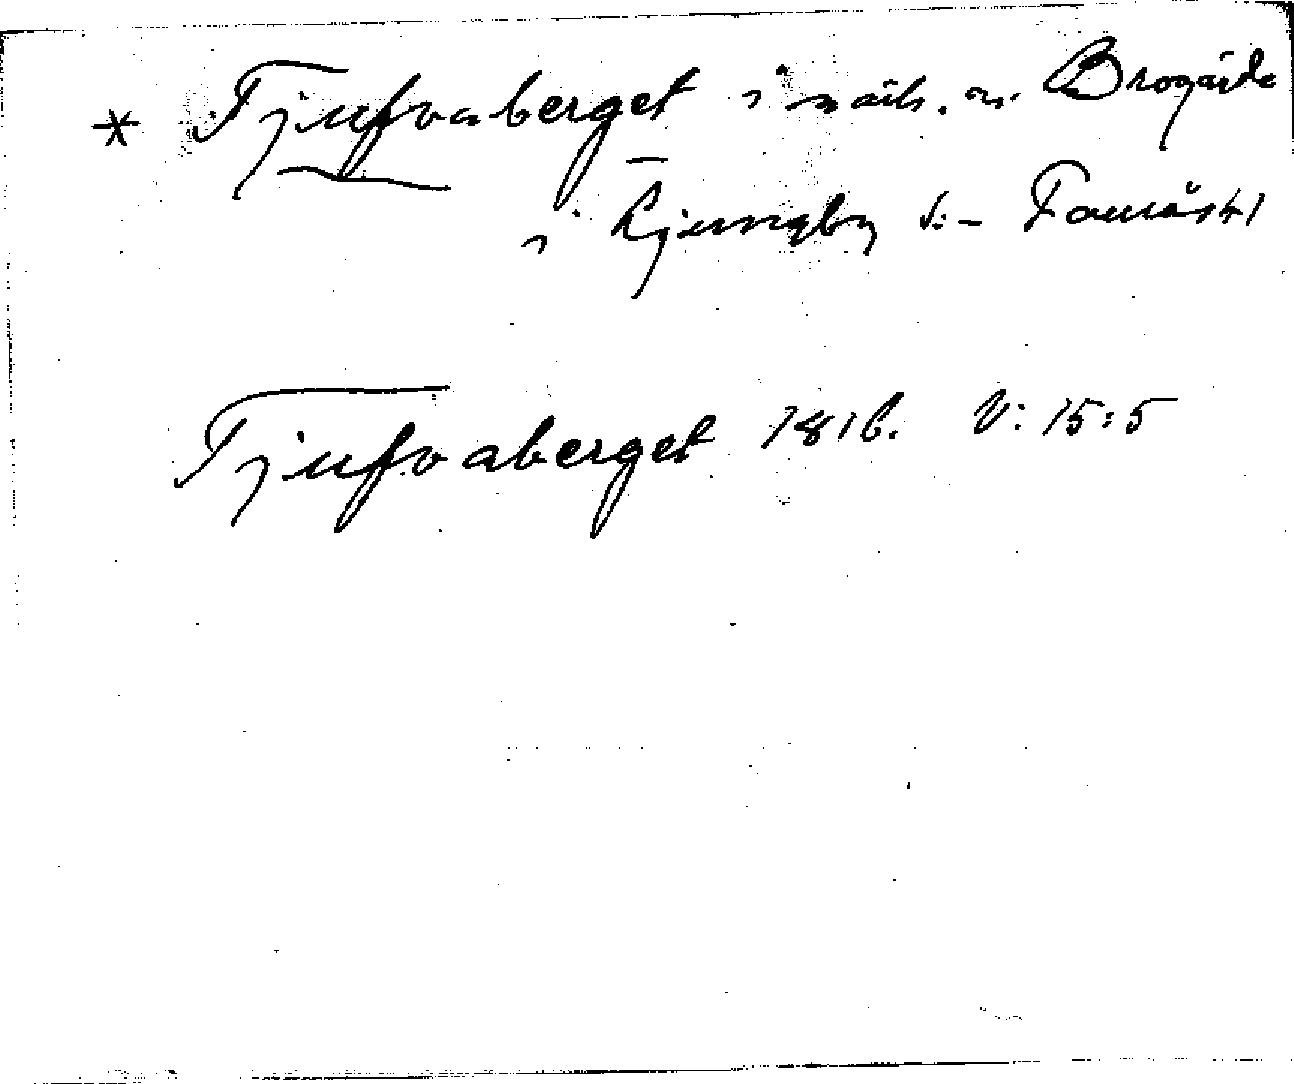 * Tjufvaberget i närh. av Brogärde
i Ljungby s:n Faurås hd
Tjufvaberget 1816. V: 15:5